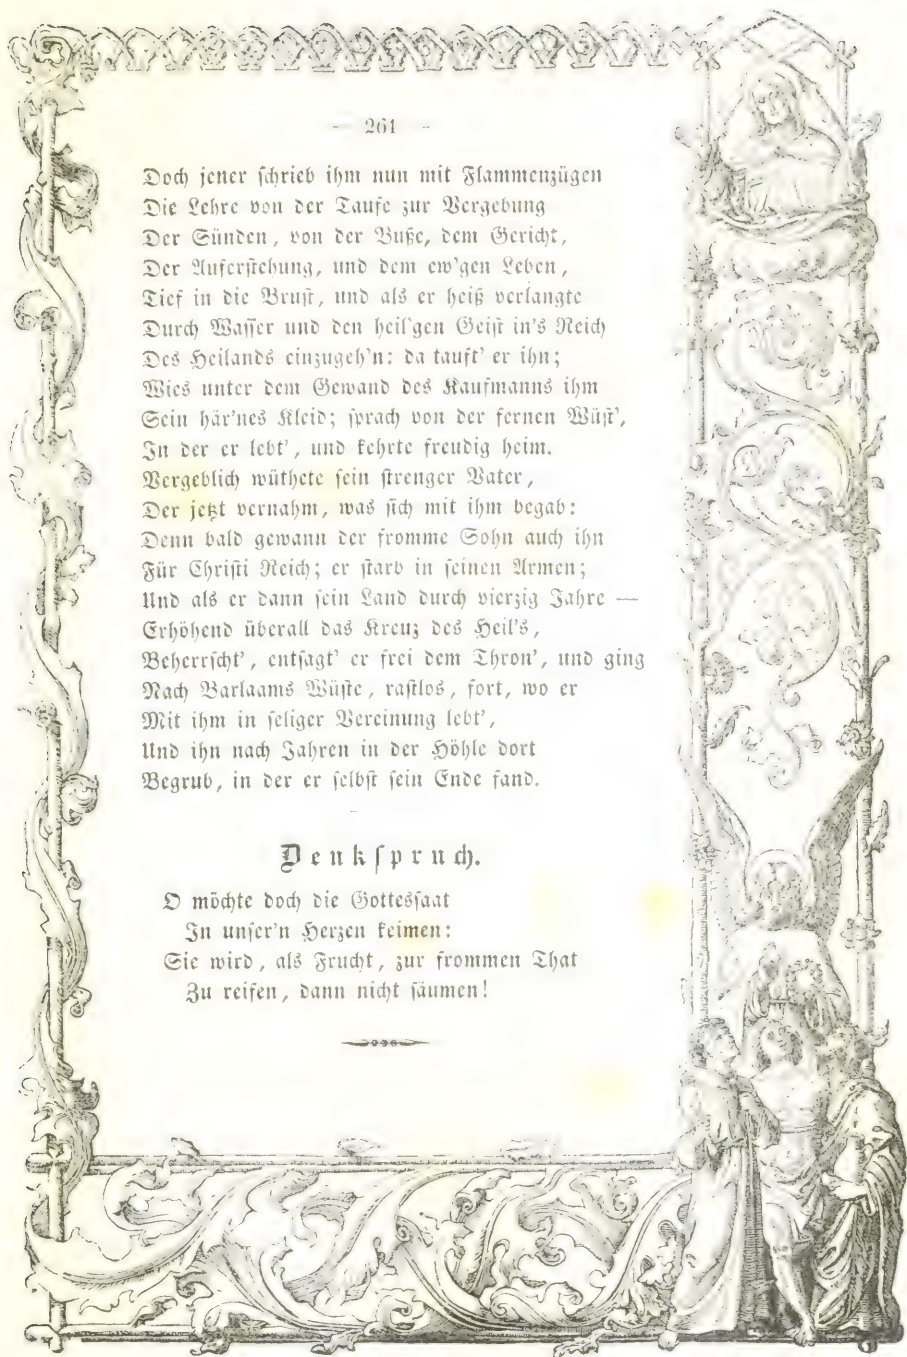 — 261 —
Doch jener schrieb ihm nun mit Flammenzügen
Die Lehre von der Taufe zur Vergebung
Der Sünden, von der Buße, dem Gericht,
Der Auferstehung, und dem ew'gen Leben,
Tief in die Brust, und als er heiß verlangte
Durch Wasser und den heil'gen Geist in's Reich
Des Heilands einzugeh'n: da tauft' er ihn;
Wies unter dem Gewand des Kaufmanns ihm
Sein här'nes Kleid; sprach von der fernen Wüst',
In der er lebt', und kehrte freudig heim.
Vergeblich wüthete sein strenger Vater,
Der jetzt vernahm, was sich mit ihm begab:
Denn bald gewann der fromme Sohn auch ihn
Für Christi Reich; er starb in seinen Armen;
Und als er dann sein Land durch vierzig Jahre —
Erhöhend überall das Kreuz des Heil's,
Beherrscht', entsagt' er frei dem Thron', und ging
Nach Barlaams Wüste, rastlos, fort, wo er
Mit ihm in seliger Vereinung lebt',
Und ihn nach Jahren in der Höhle dort
Begrub, in der er selbst sein Ende fand.
Denkspruch.
O möchte doch die Gottessaat
In unser'n Herzen keimen:
Sie wird, als Frucht, zur frommen That
Zu reifen, dann nicht säumen!